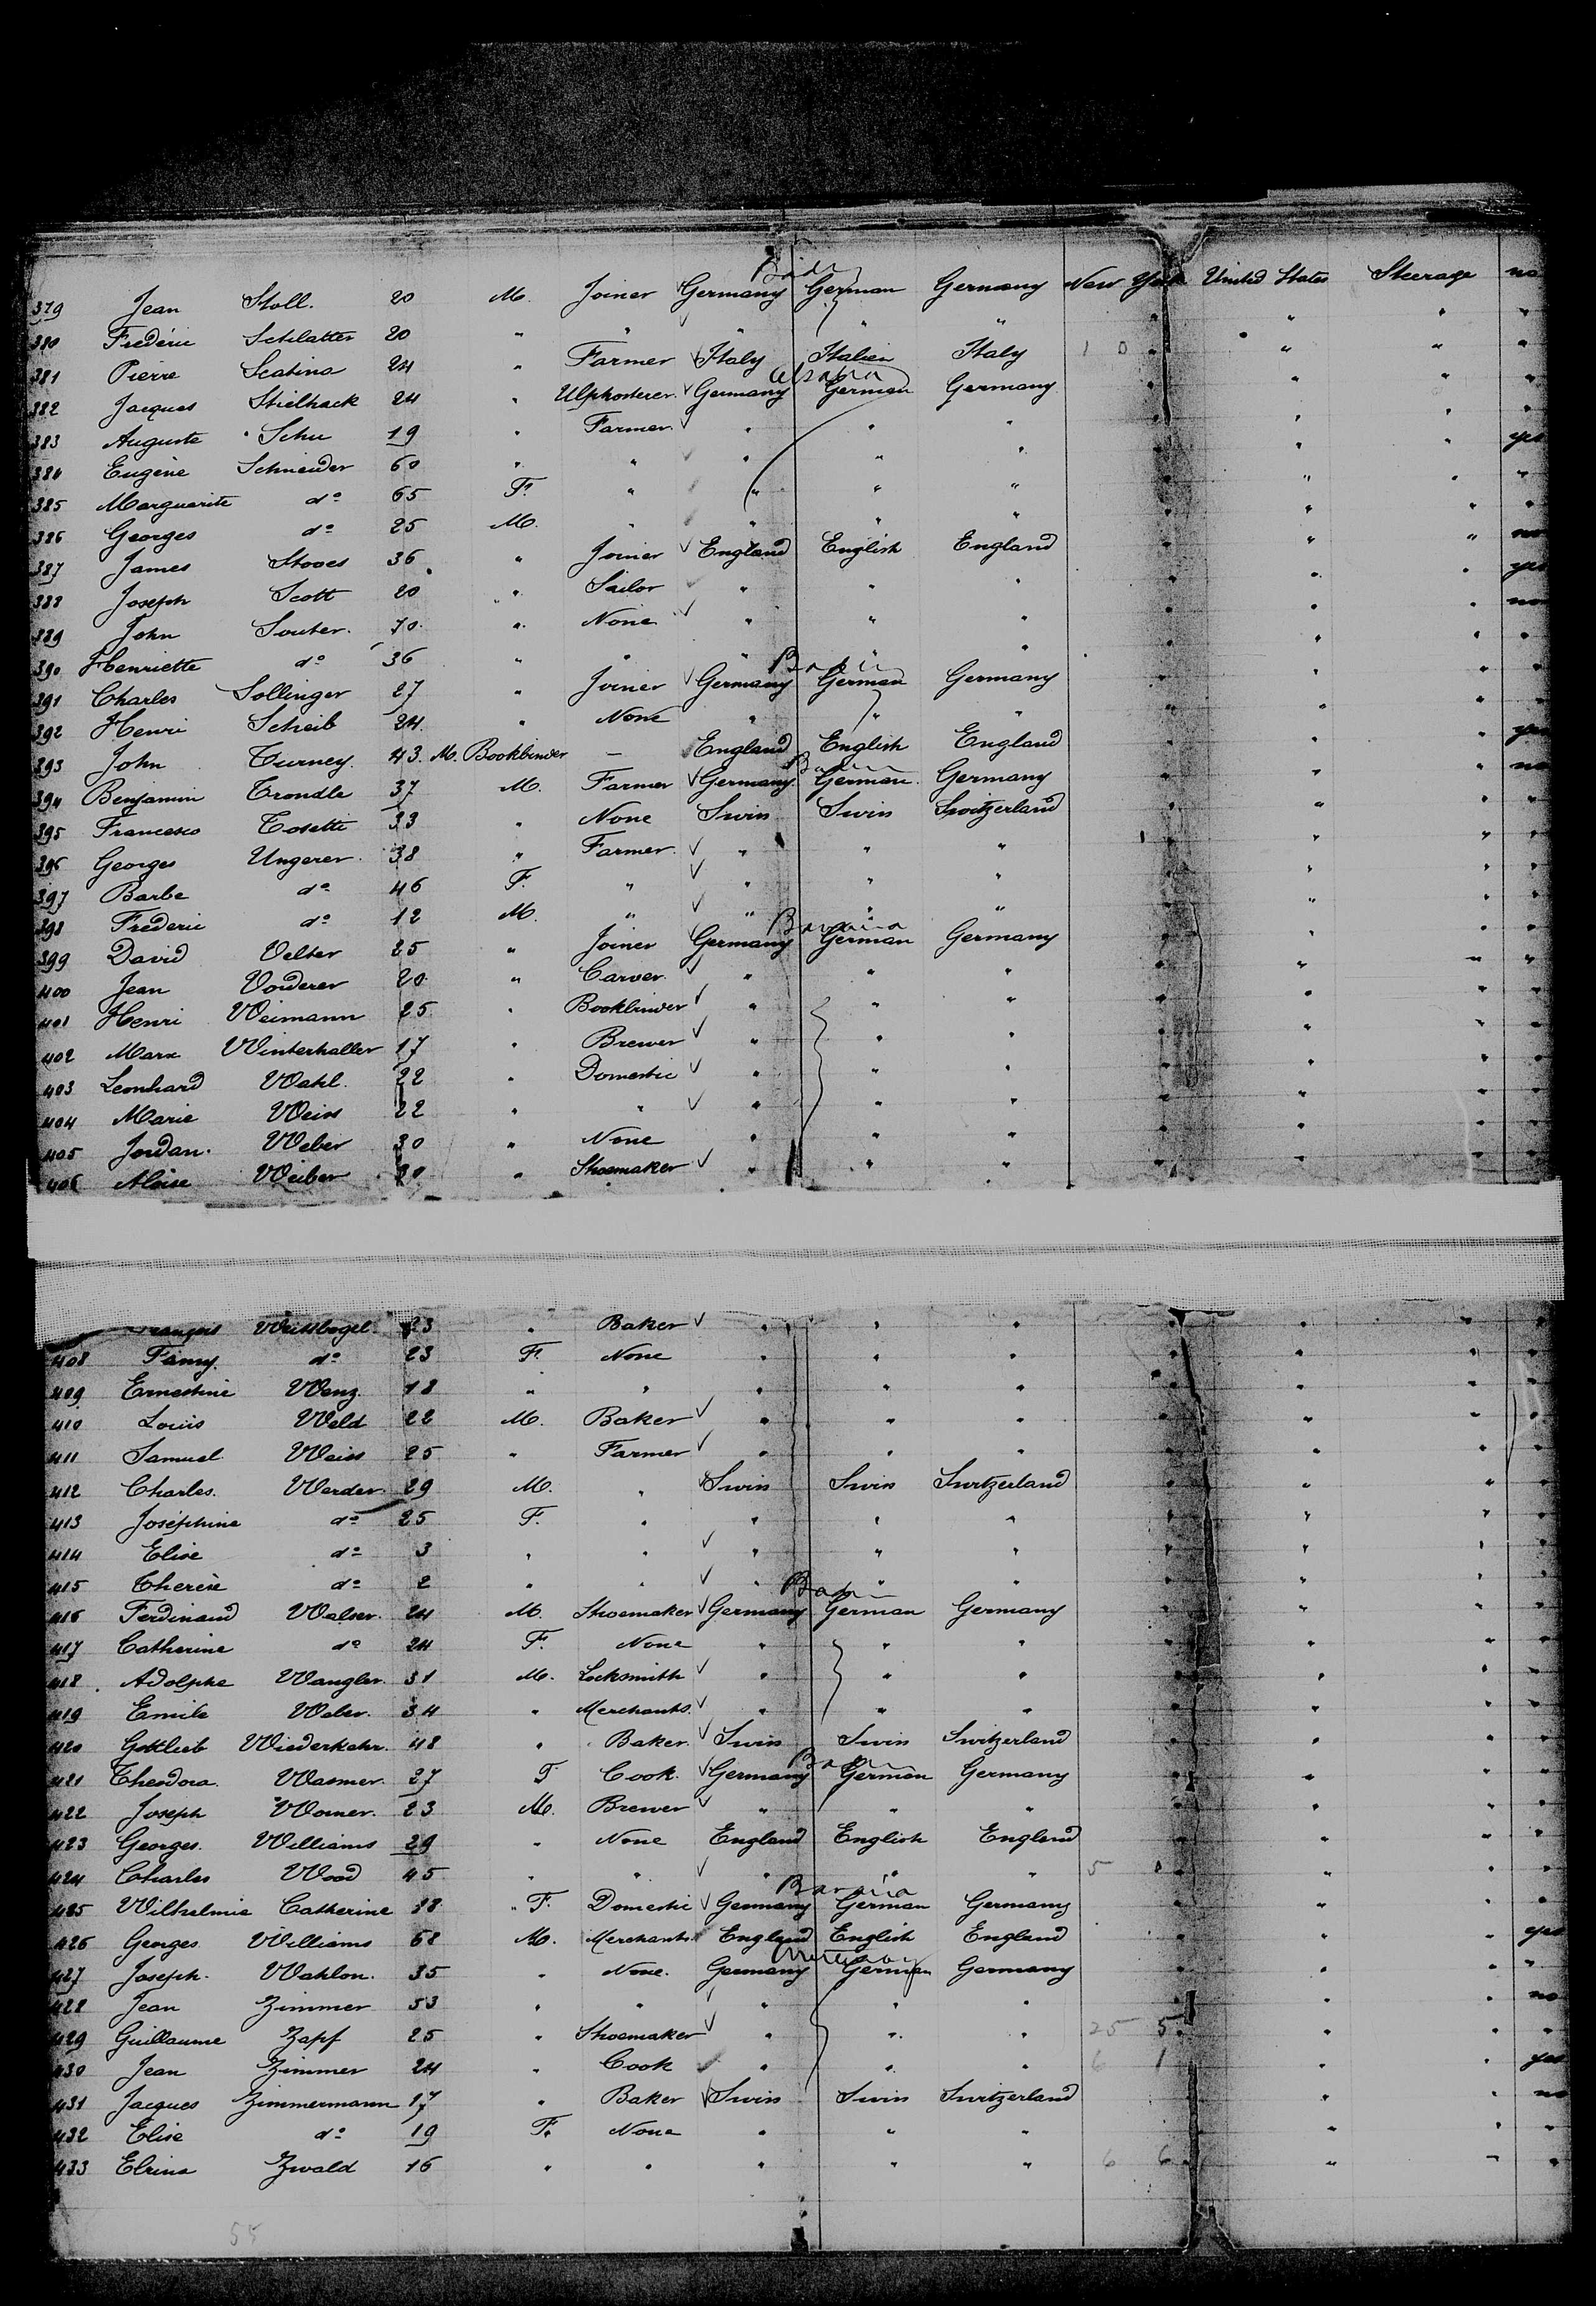 Baden
379 Jean Stoll. 20 M. Joiner Germany German Germany New York United States Steerage no
380 Frédéric Schlatter 20 " " " " " " " " "
381 Pierre Scatina 24 " Farmer Italy Italien Italy 10 " " " "
382 Jacques Stielhack 24 " Germany German Germany " " " "
383 Auguste Schu 19 " Farmer. " " " " " " "
384 Eugène Schneider 60 " " " " " " " " yes
385 Marguerite do 65 F. " " " " " " " "
386 Georges do 25 M. " " " " " " " "
387 James Stooes 36 " Joiner England English England " " " no
388 Joseph Scott 20 " Sailor " " " " " " yes
389 John Souter. 70. " None " " " " " " no
390 Henriette do 36 " " " " " " " " "
391 Charles Sollinger 27 " Joiner Germany German Germany " " " "
392 Henri Scheib 24. " None " " " " " " "
393 John Turney. 43. M. Bookbinder — England English England " " " yes
394 Benjamin Trondle 37 M. Farmer Germany German Germany " " " no
395 Francesco Tosetti 33 " None Swiss Swiss Switzerland " " " "
396 Georges Ungerer. 38 " Farmer. " " " 1 " " " "
397 Barbe do 46 F. " " " " " " " "
398 Frédéric do 12 M. " " " " " " " "
Bavaria
399 David Velter 25 " Joiner Germany German Germany " " " "
400 Jean Vorderer 20 " Carver. " " " " " " "
401 Henri Weimann 25 " Bookbinder " " " " " " "
402 Marx Winterhalter 17 " Brewer " " " " " " "
403 Leonhard Wahl. 22 " Domestic " " " " " " "
404 Marie Weiss 22 " " " " " " " " "
405 Jordan. Weber 30 " None " " " " " " "
406 Aloise Weiber 20 " Shoemaker " " " " " " "
François 23 " Baker " " " " " " "
408 Fanny. do 23 F. None " " " " " " "
409 Ernestine Wenz. 18 " " " " " " " " "
410 Louis Weld 22 M. Baker " " " " " " "
411 Samuel Weiss 25 " Farmer " " " " " " "
412 Charles. Werder. 29 M. " Swiss Swiss Switzerland " " " "
413 Joséphine do 25 F. " " " " " " " "
414 Elise do 3 " " " " " " " " "
415 Therèse do 2 " " " " " " " " "
Baden
416 Ferdinand Walser. 24 M. Shoemaker Germany German Germany " " " "
417 Catherine do 24 F. None " " " " " " "
418 Adolphe Wangler. 31 M. Locksmith " " " " " " "
419 Emile Weber. 34 " Merchants. " " " " " " "
420 Gottlieb Wiederkehr. 48 " Baker. Swiss Swiss Switzerland " " " "
421 Theodora. Wasmer. 27 F Cook. Germany German Germany " " " "
422 Joseph Womer. 23 M. Brewer " " " " " " "
423 Georges. Williams 29 " None England English England " " " "
424 Charles Wood 45 " " " " " 5 " " " "
Bavaria
425 Wilhelmie Catherine 38 F. Domestic Germany German Germany " " " "
426 Georges Williams 68 M. Merchants. England English England " " " yes
427 Joseph. Wahlon. 35 " None. Germany German Germany " " " "
428 Jean Zimmer 53 " " " " " " " " no
429 Guillaume Zapf 25 " Shoemaker " " " 25 5 " " " "
430 Jean Zimmer 24 " Cook " " " 6 1 " " " yes
431 Jacques Zimmermann 17 " Baker Swiss Swiss Switzerland " " " no
432 Elise do 19 F. None " " " " " " "
433 Elrina Zwald 16 " " " " " 6 6 " " " "
55